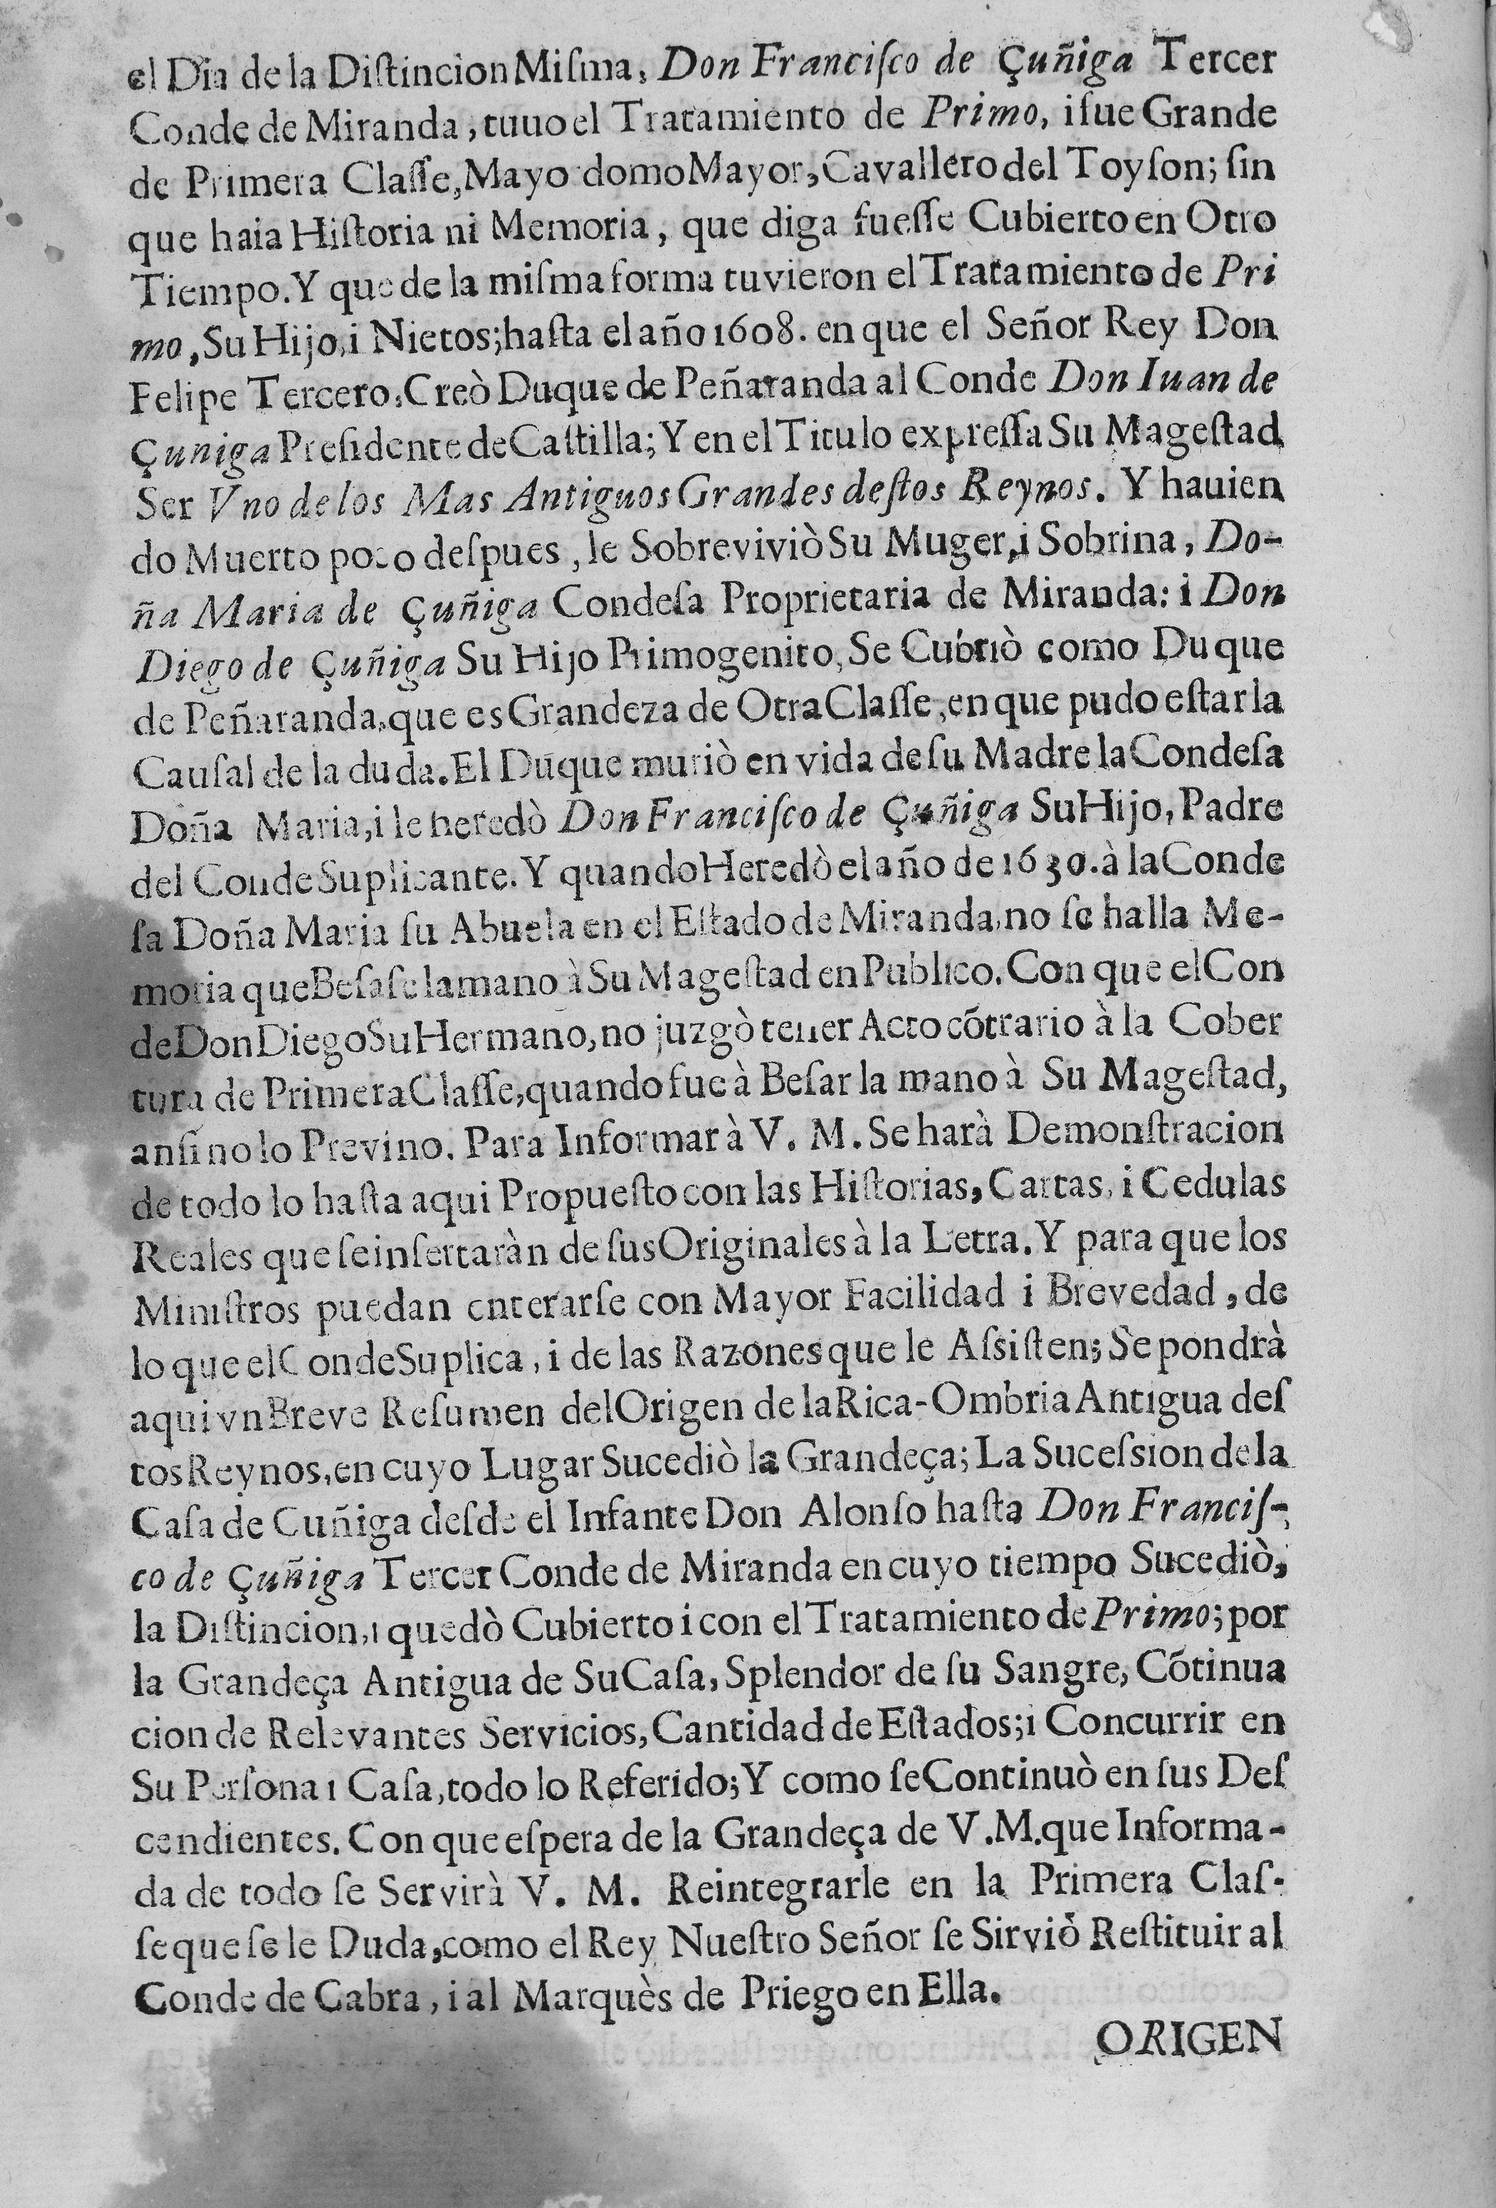 el Dia de la Distincion Misma, Don Francisco de Çuñiga Tercer
Conde de Miranda, tuuo el Tratamiento de Primo, i fue Grande
de Primera Classe, Mayo domo Mayor, Cavallero del Toyson; sin
que haia Historia ni Memoria, que diga fuesse Cubierto en Otro
Tiempo. Y que de la misma forma tuvieron el Tratamiento de Pri
mo, Su Hijo, i Nietos; hasta el año 1608. en que el Señor Rey Don
Felipe Tercero, Creò Duque de Peñaranda al Conde Don Iuan de
Çuniga Presidente de Castilla; Y en el Titulo expressa Su Magestad
Ser Vno de los Mas Antiguos Grandes destos Reynos. Y hauien
do Muerto poco despues, le Sobreviviò Su Muger, i Sobrina, Do-
ña Maria de Çuñiga Condesa Proprietaria de Miranda: i Don
Diego de Çuñiga Su Hijo Primogenito, Se Cubriò como Duque
de Peñaranda, que es Grandeza de Otra Classe, en que pudo estar la
Causal de la duda. El Duque muriò en vida de su Madre la Condesa
Doña Maria, i le heredò Don Francisco de Çuñiga Su Hijo, Padre
del Conde Suplicante. Y quando Heredò el año de 1630. à la Conde
sa Doña Maria su Abuela en el Estado de Miranda, no se halla Me-
moria que Besase la mano à Su Magestad en Publico. Con que el Con
de Don Diego Su Hermano, no juzgò tener Acto cõtrario à la Cober
tura de Primera Classe, quando fue à Besar la mano à Su Magestad,
ansi no lo Previno. Para Informar à V. M. Se harà Demonstracion
de todo lo hasta aqui Propuesto con las Historias, Cartas, i Cedulas
Reales que se insertaràn de sus Originales à la Letra. Y para que los
Ministros puedan enterarse con Mayor Facilidad i Brevedad, de
lo que el Conde Suplica, i de las Razones que le Assisten; Se pondrà
aqui vn Breve Resumen del Origen de la Rica-Ombria Antigua des
tos Reynos, en cuyo Lugar Sucediò la Grandeça; La Sucession de la
Casa de Cuñiga desde el Infante Don Alonso hasta Don Francis-
co de Çuñiga Tercer Conde de Miranda en cuyo tiempo Sucediò,
la Distincion, i quedò Cubierto i con el Tratamiento de Primo; por
la Grandeça Antigua de Su Casa, Splendor de su Sangre, Cõtinua
cion de Relevantes Servicios, Cantidad de Estados; i Concurrir en
Su Persona i Casa, todo lo Referido; Y como se Continuò en sus Des
cendientes. Con que espera de la Grandeça de V.M. que Informa-
da de todo se Servirà V. M. Reintegrarle en la Primera Clas-
se que se le Duda, como el Rey Nuestro Señor se Sirviò Restituir al
Conde de Cabra, i al Marquès de Priego en Ella.
ORIGEN